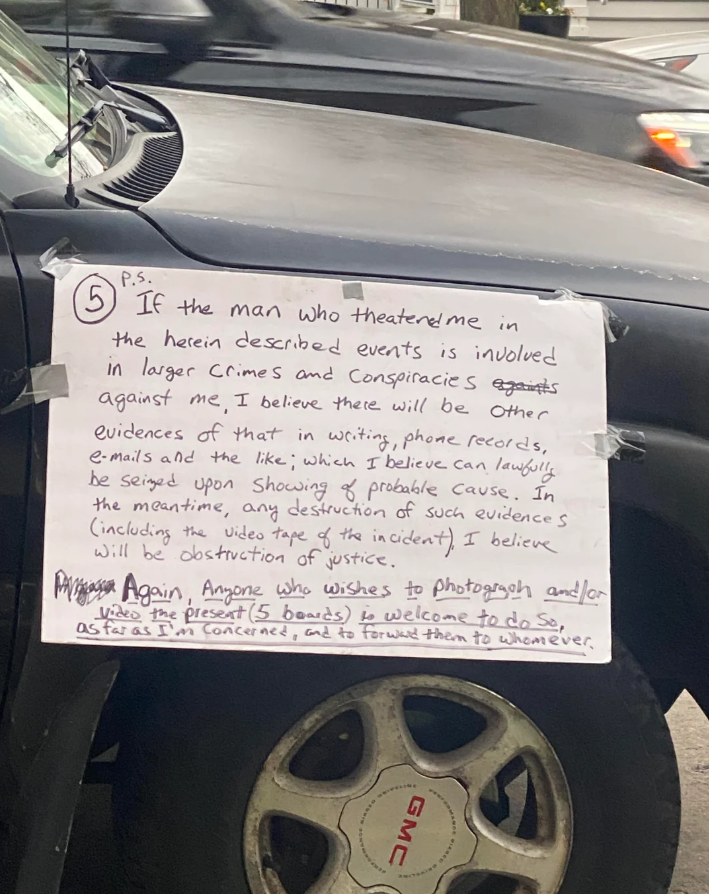 5 P.S.
If the man who theatend me in
the herein described events is involved
in larger crimes and conspiracies againts
against me, I believe there will be other
evidences of that in writing, phone records,
e-mails and the like; which I believe can lawfully
be seized upon showing of probable cause. In
the meantime, any destruction of such evidences
(including the video tape of the incident), I believe
will be obstruction of justice.
Again, Anyone who wishes to photogragh and/or
video the present (5 boards) is welcome to do so,
as far as I'm concerned, and to forward them to whomever.
GMC